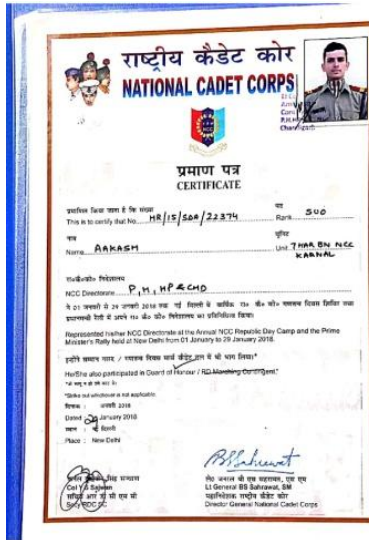 राष्ट्रीय कैडेट कोर
NATIONAL CADET CORPS
NCC
प्रमाण पत्र
CERTIFICATE
प्रमाणित किया जाता है कि संख्या
पद
This is to certify that No. HR/15/SDA/22374 Rank SUO
नाम
यूनिट
Name AAKASH Unit 7 HAR BN NCC
KARNAL
रा०कै०को० निदेशालय
NCC Directorate P, H, HP & CHD
ने 01 जनवरी से 29 जनवरी 2018 तक नई दिल्ली के वार्षिक रा० कै० को० गणतंत्र दिवस शिविर तथा
प्रधानमंत्री रैली में अपने रा० कै० को० निदेशालय का प्रतिनिधित्व किया।
Represented his/her NCC Directorate at the Annual NCC Republic Day Camp and the Prime
Minister's Rally held at New Delhi from 01 January to 29 January 2018.
इन्होंने सम्मान गारद / गणतंत्र दिवस मार्च कंटिंजेंट में भी भाग लिया।*
He/She also participated in Guard of Honour / RD Marching Contingent.*
*Strike out whichever is not applicable.
दिनांक : जनवरी 2018
Dated 29 January 2018
स्थान : नई दिल्ली
Place : New Delhi
Col Y S
Secy RDC
ले० जनरल बी एस सहरावत, एस एम
Lt General BS Sahrawat, SM
महानिदेशक राष्ट्रीय कैडेट कोर
Director General National Cadet Corps